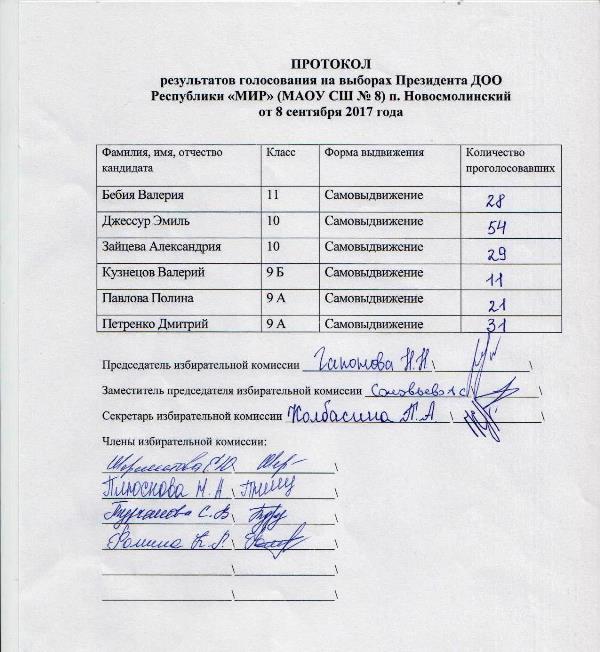 ПРОТОКОЛ
результатов голосования на выборах Президента ДОО
Республики «МИР» (МАОУ СШ № 8) п. Новосмолинский
от 8 сентября 2017 года
Фамилия, имя, отчество кандидата Класс Форма выдвижения Количество проголосовавших
Бебия Валерия 11 Самовыдвижение 28
Джессур Эмиль 10 Самовыдвижение 54
Зайцева Александрия 10 Самовыдвижение 29
Кузнецов Валерий 9 Б Самовыдвижение 11
Павлова Полина 9 А Самовыдвижение 21
Петренко Дмитрий 9 А Самовыдвижение 31
Председатель избирательной комиссии Гапонова Н.Н. \ \
Заместитель председателя избирательной комиссии Соловьева \ \
Секретарь избирательной комиссии Колбасина П.А. \ \
Члены избирательной комиссии:
Плюснова М.А. \ \
С.В. \ \
Фомина К.Р. \ \